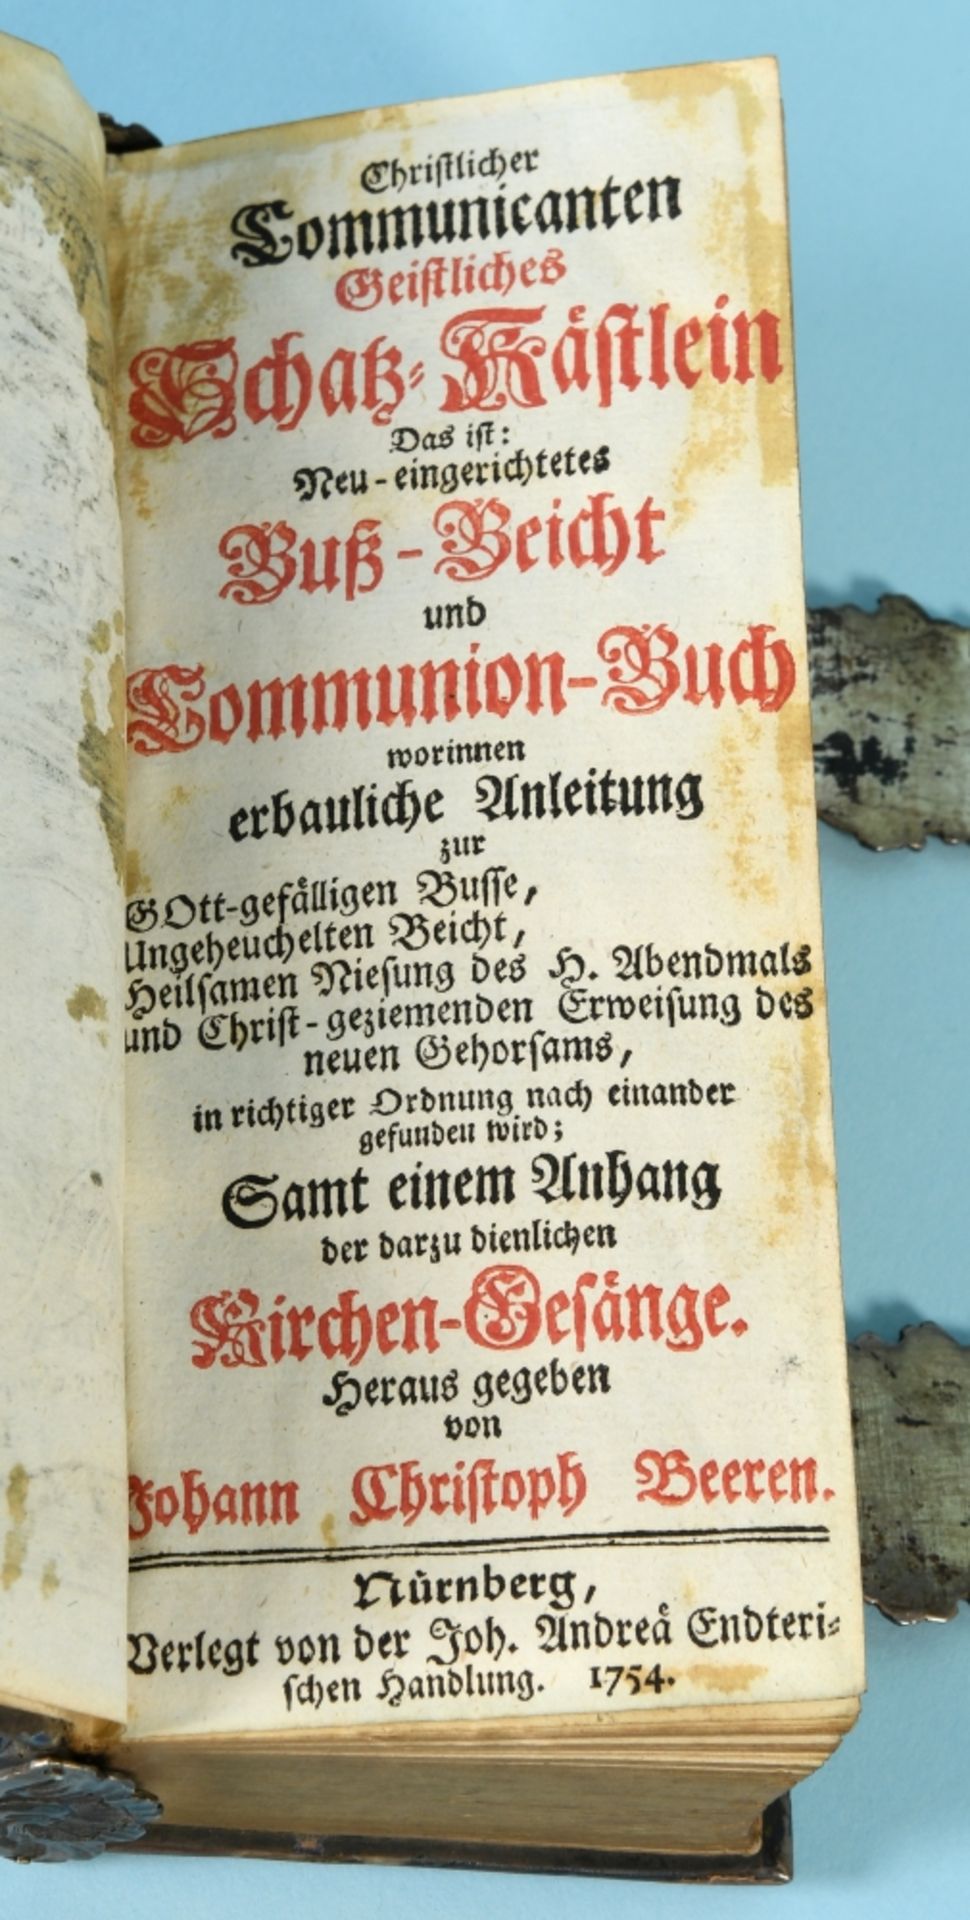 Christlicher
Communicanten
Geistliches
Schatz-Kästlein
Das ist:
Neu-eingerichtetes
Buß-Beicht
und
Communion-Buch
worinnen
erbauliche Anleitung
zur
GOtt-gefälligen Busse,
Ungeheuchelten Beicht,
Heilsamen Niesung des H. Abendmals
und Christ-geziemenden Erweisung des
neuen Gehorsams,
in richtiger Ordnung nach einander
gefunden wird;
Samt einem Anhang
der darzu dienlichen
Kirchen-Gesänge.
Heraus gegeben
von
Johann Christoph Beeren.
Nürnberg,
Verlegt von der Joh. Andreä Endteri-
schen Handlung. 1754.